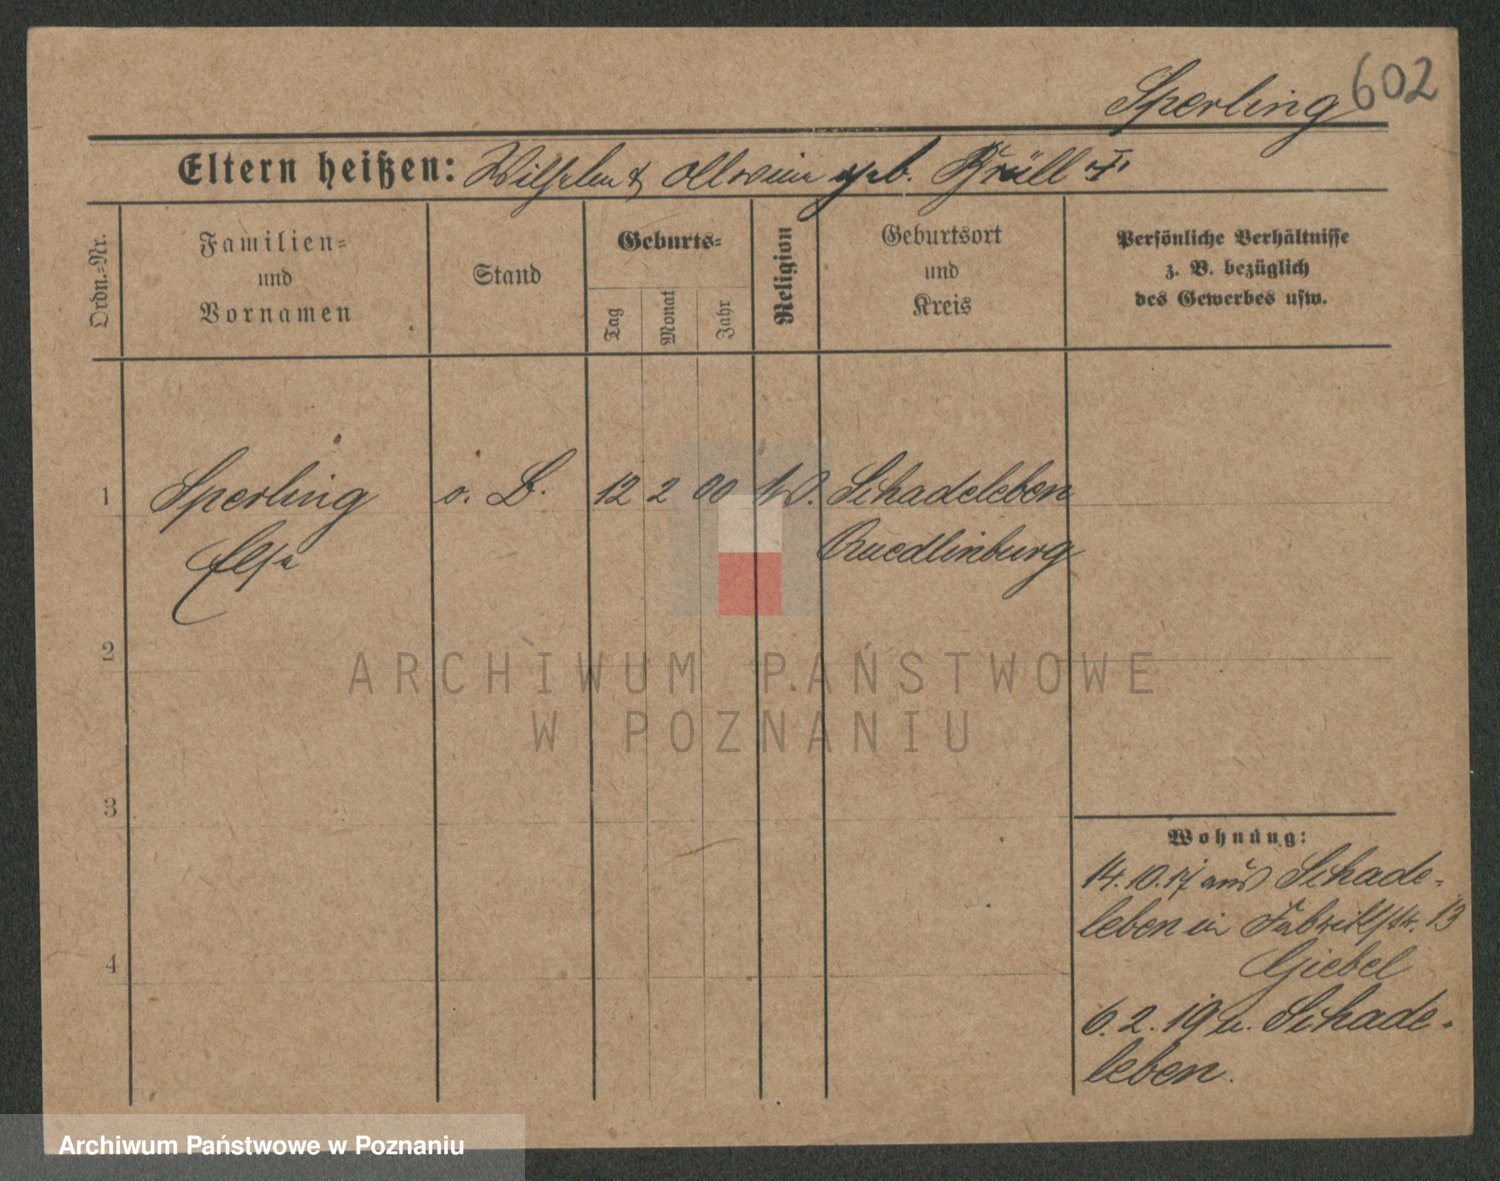 Sperling 602
Eltern heißen: Wilhelm & Allwine geb. Krüll
Ordn.-Nr.
Familien-
und
Vornamen
Stand
Geburts-
Tag
Monat
Jahr
Religion
Geburtsort
und
Kreis
Persönliche Verhältnisse
z. B. bezüglich
des Gewerbes usw.
1 Sperling o. B. 12 2 00 Schadeleben
Else Quedlinburg
2
3
4
Wohnung:
14.10.17 aus Schade-
leben in Fabrikstr. 13
Giebel
6.2.19 n. Schade-
leben.
ARCHIWUM PAŃSTWOWE
W POZNANIU
Archiwum Państwowe w Poznaniu